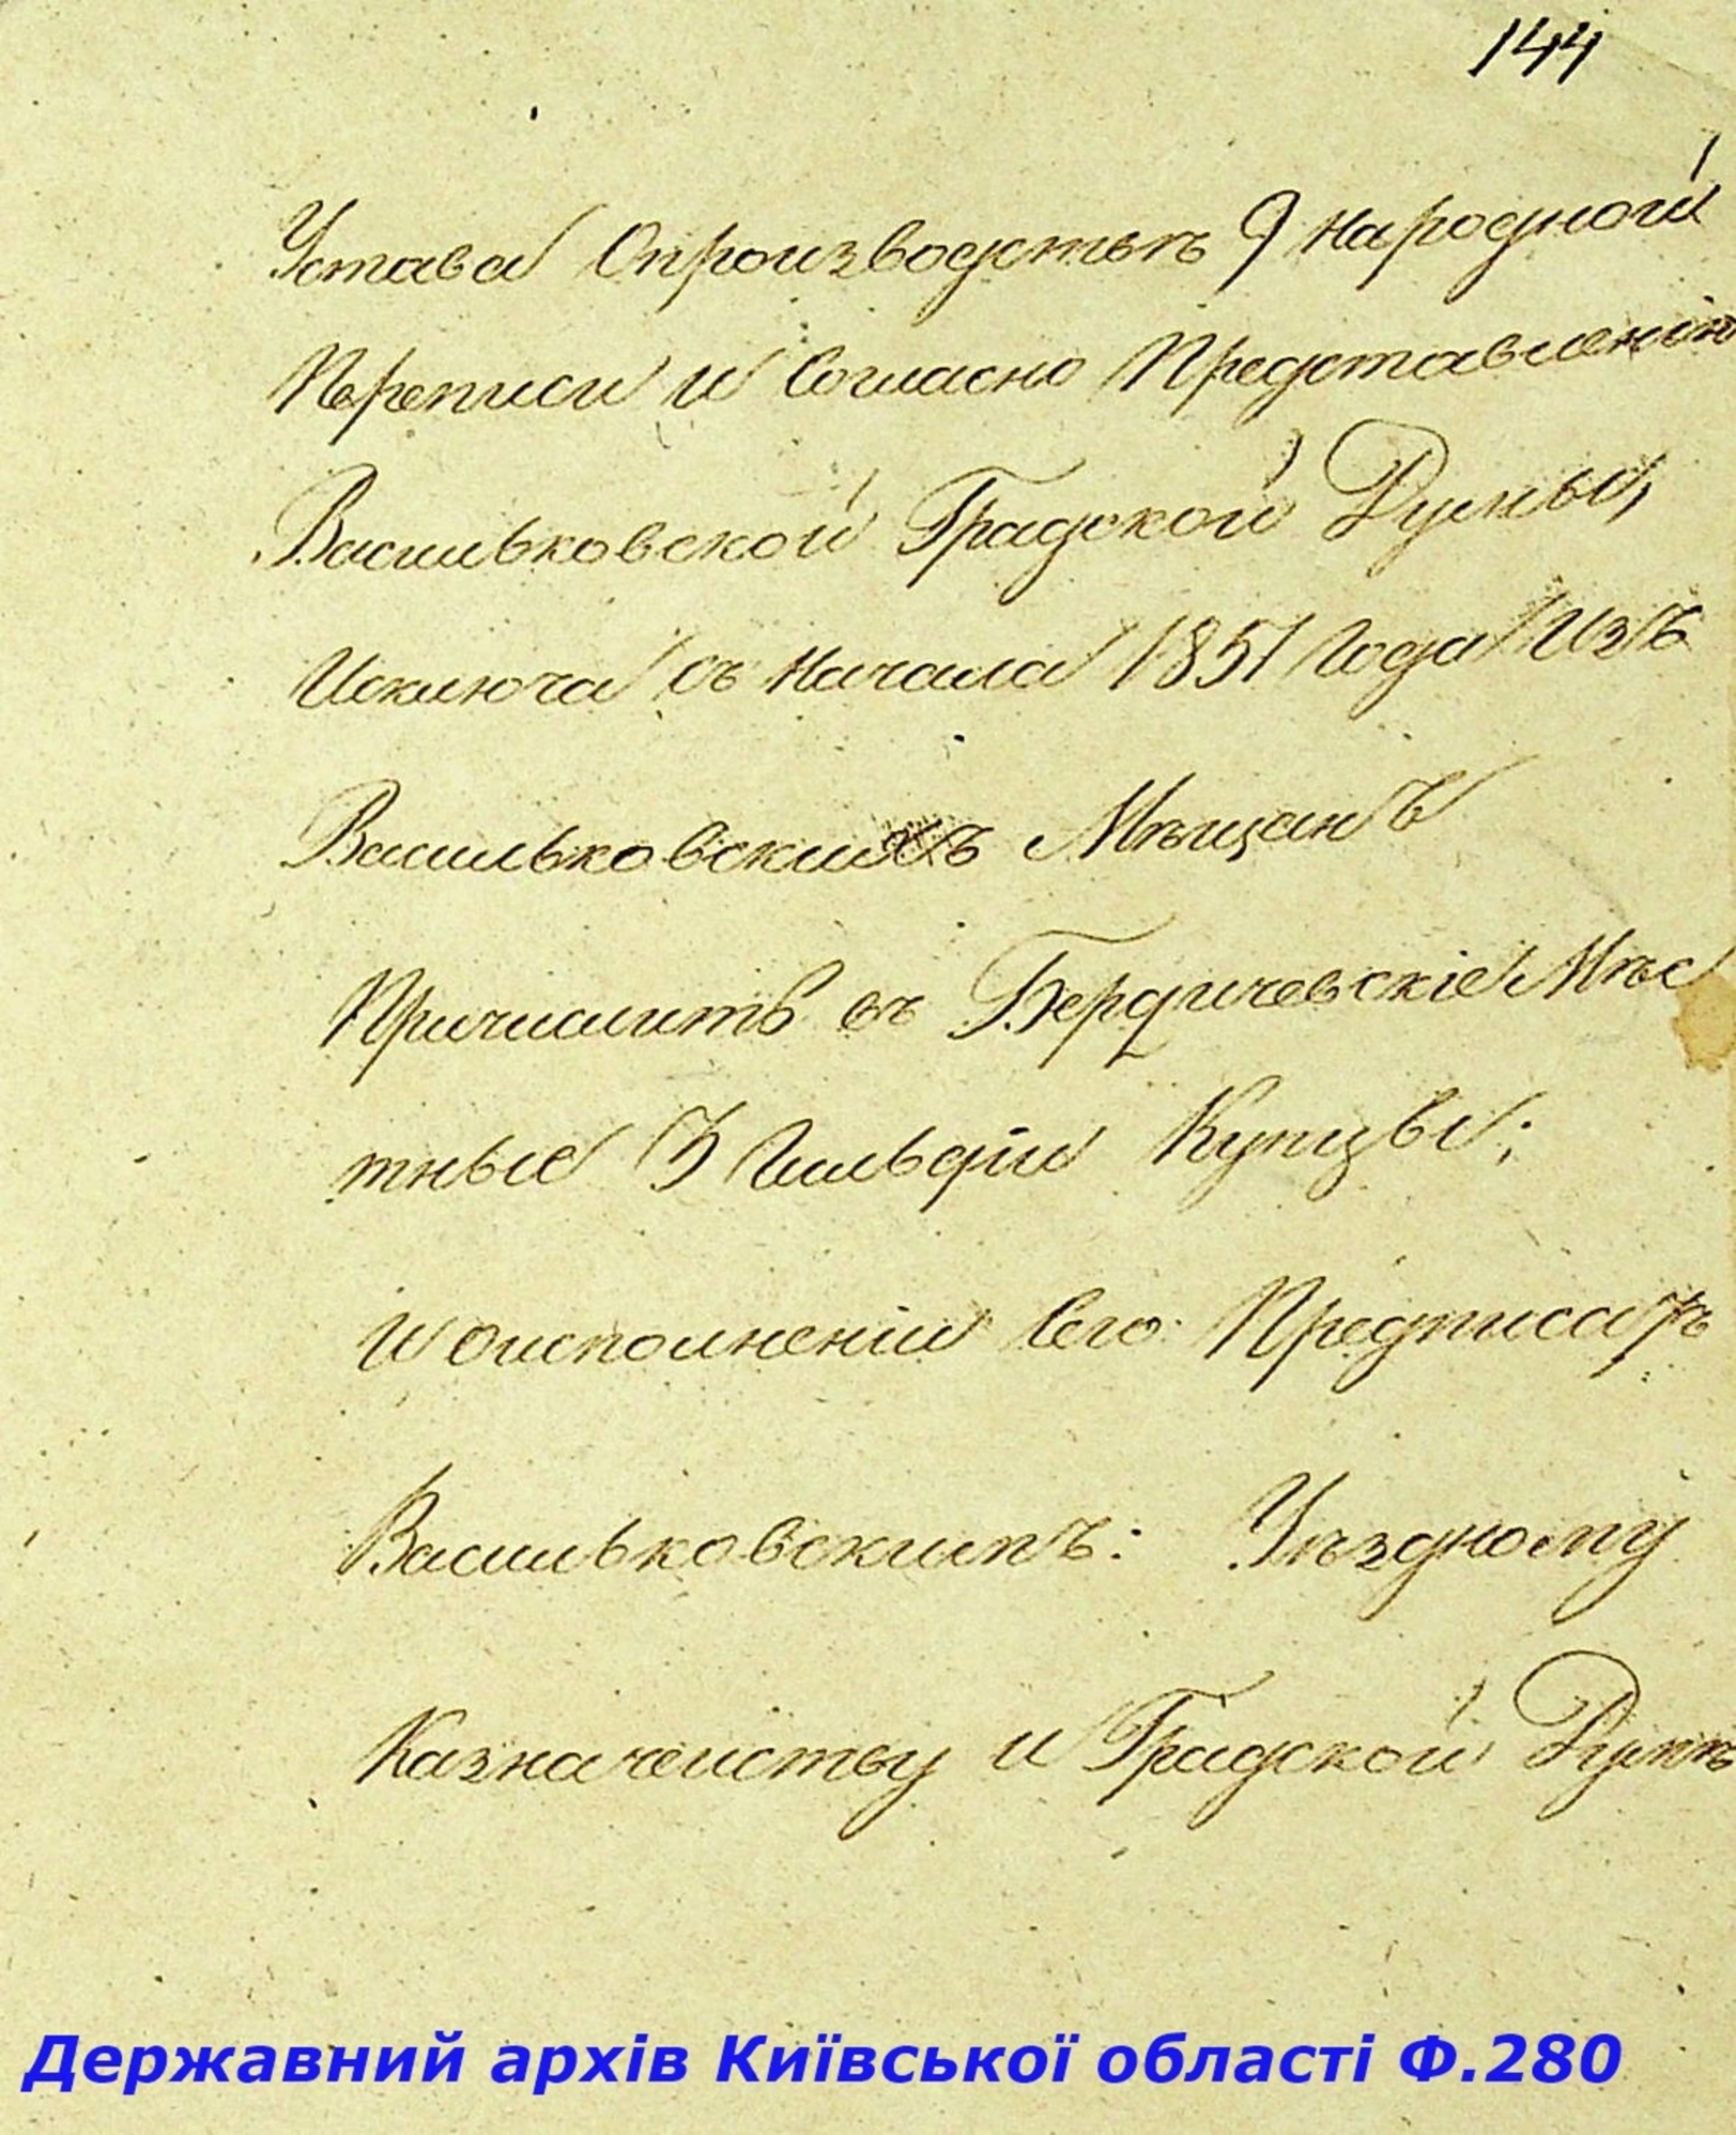 144
Устава Опроизводствѣ 9 народной
Переписи и Согласно Представленію
Васильковской Градской Думы,
Исключа съ Начала 1851 Года Изъ
Васильковскихъ Мѣщанъ
Причислить въ Бердичевскіе Мѣс
тные 3 Гильдіи Купцы;
И оисполненіи Сего Предписать
Васильковскимъ: Уѣздному
Казначейству и Градской Думѣ
Державний архів Київської області Ф.280